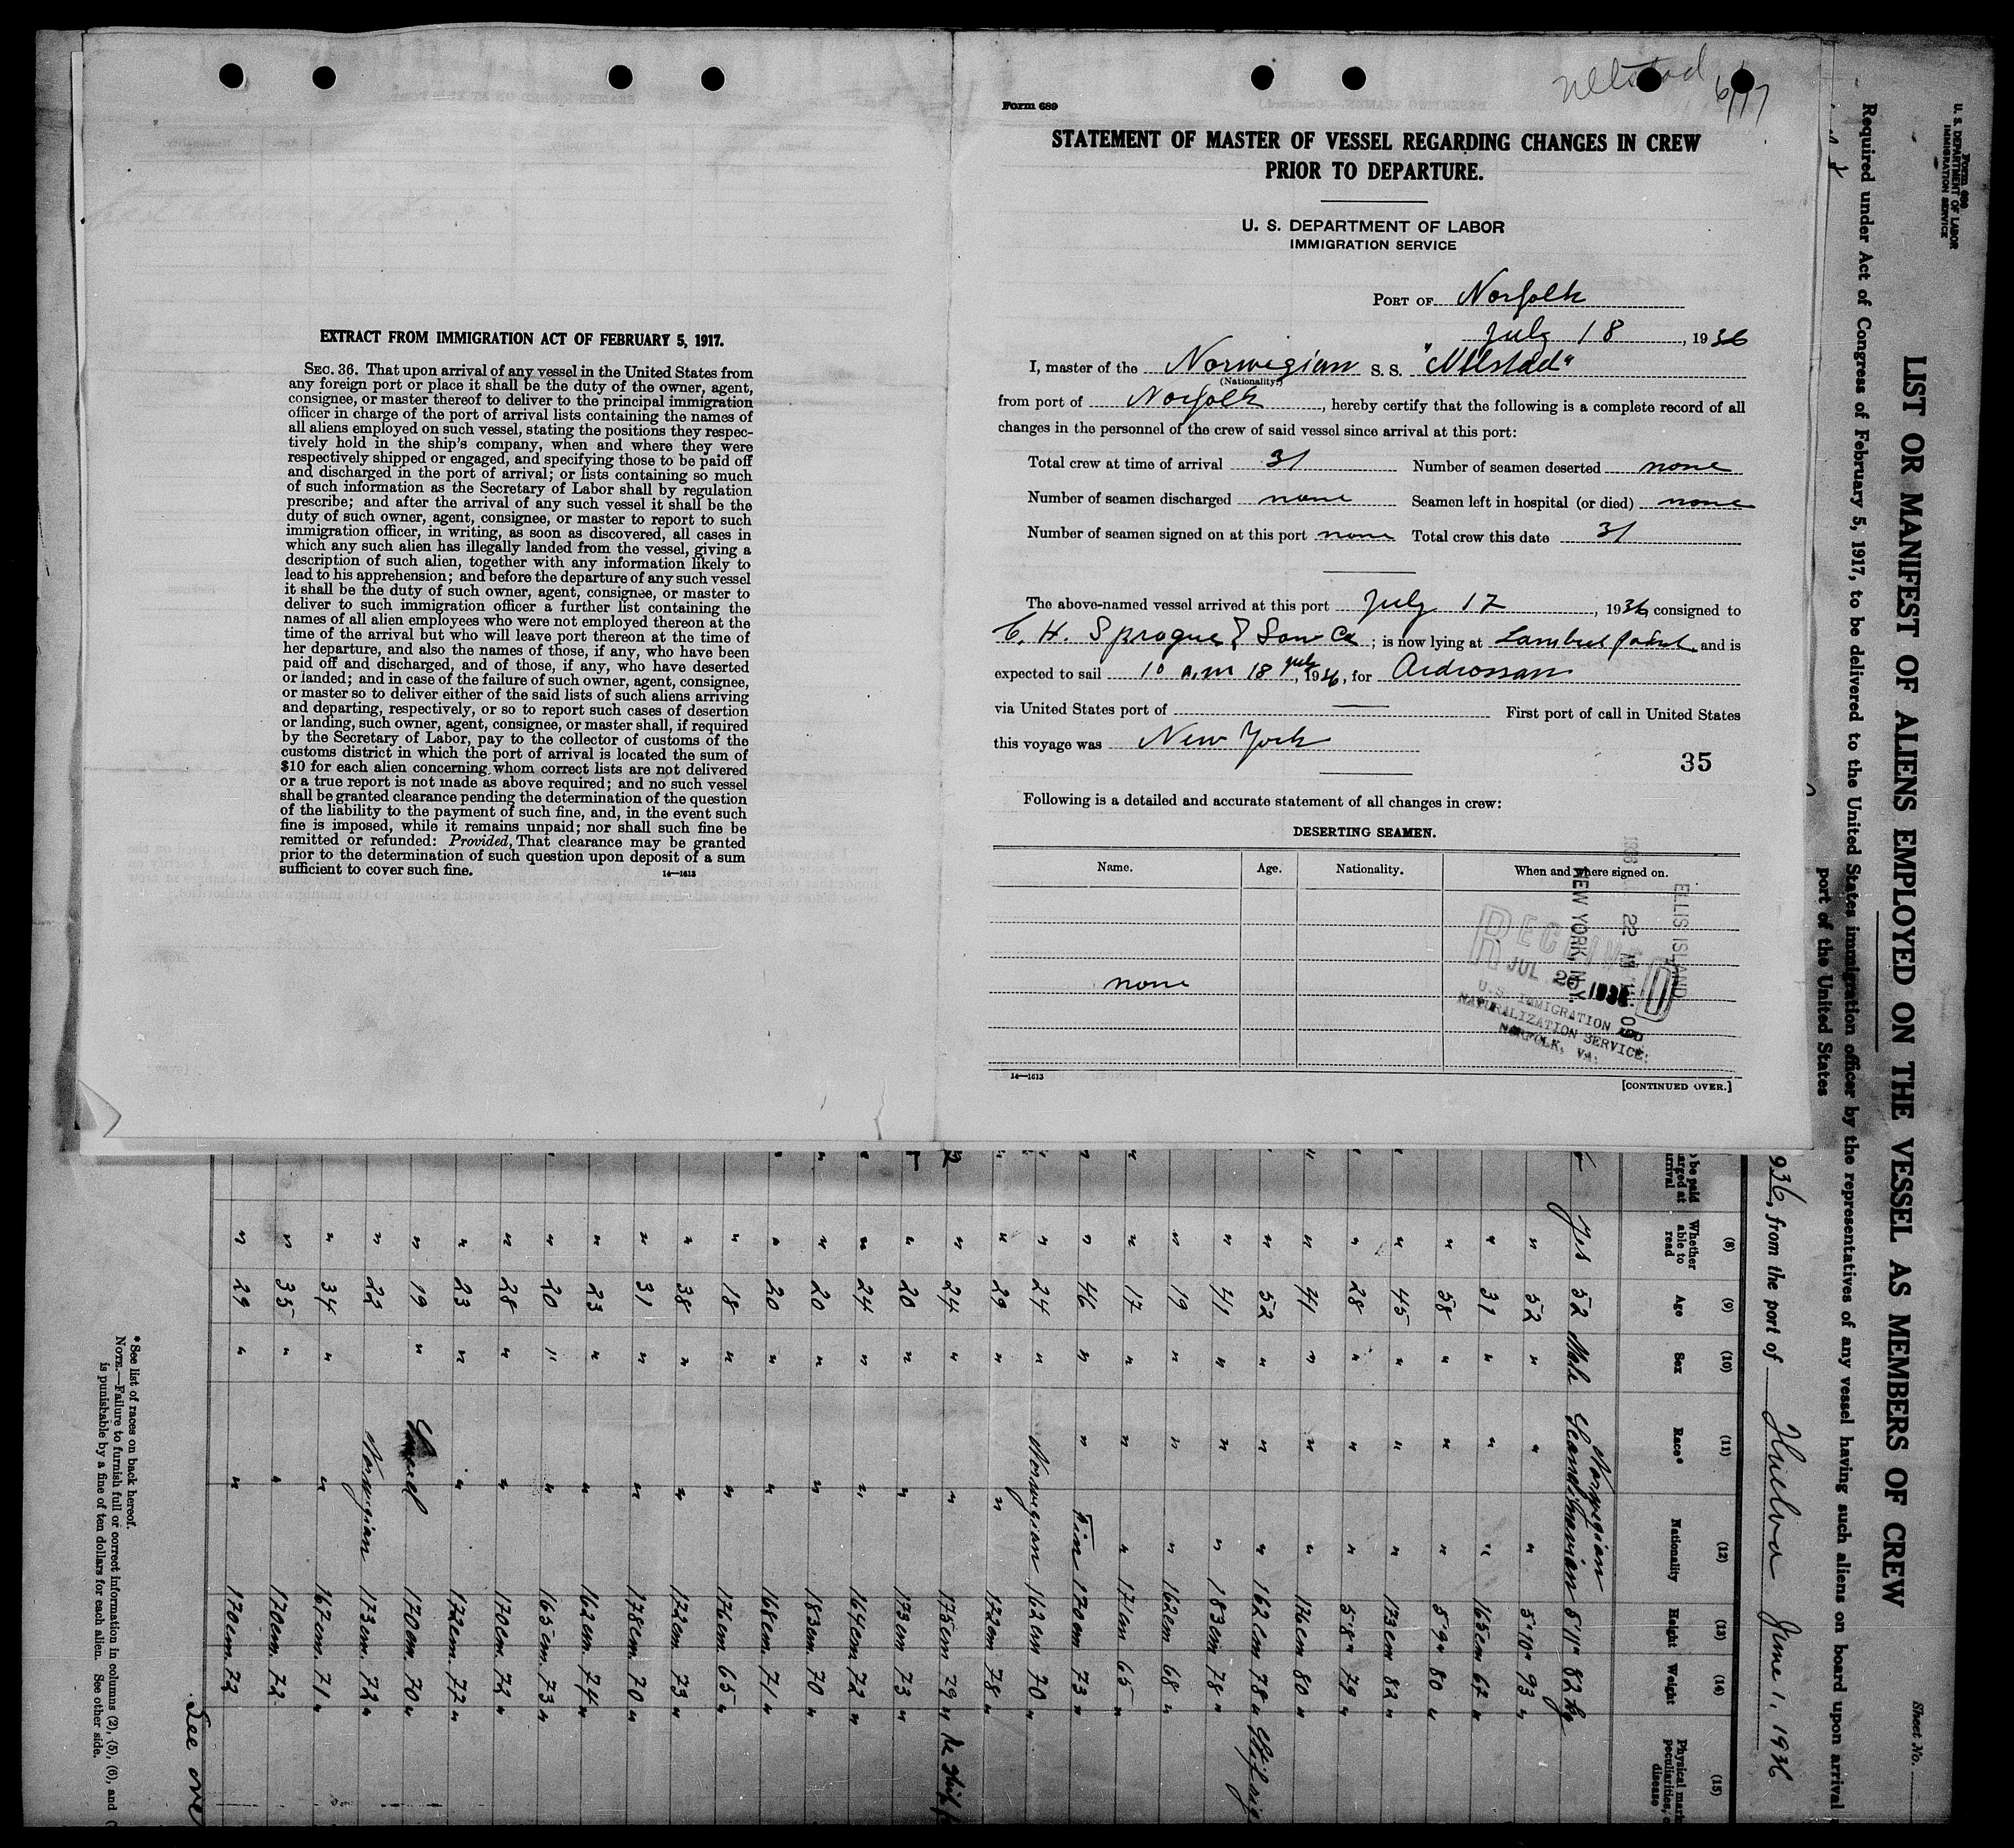 Form 689
6/17
STATEMENT OF MASTER OF VESSEL REGARDING CHANGES IN CREW
PRIOR TO DEPARTURE.
U. S. DEPARTMENT OF LABOR
IMMIGRATION SERVICE
PORT OF Norfolk
July 18, 1936
I, master of the Norwegian S. S.
(Nationality.)
from port of Norfolk, hereby certify that the following is a complete record of all
changes in the personnel of the crew of said vessel since arrival at this port:
Total crew at time of arrival 31 Number of seamen deserted none
Number of seamen discharged none Seamen left in hospital (or died) none
Number of seamen signed on at this port none Total crew this date 31
The above-named vessel arrived at this port July 17, 1936 consigned to
C. H. Sprague & Son Co; is now lying at Lambert point and is
expected to sail 10 a.m 18 july, 1936, for Ardrossan
via United States port of — First port of call in United States
this voyage was New York
35
Following is a detailed and accurate statement of all changes in crew:
DESERTING SEAMEN.
Name. Age. Nationality. When and where signed on.
none
RECEIVED
JUL 20 1936
U.S. IMMIGRATION AND
NATURALIZATION SERVICE:
NORFOLK, VA.
ELLIS ISLAND
NEW YORK, N.Y.
14—1613
[CONTINUED OVER.]
EXTRACT FROM IMMIGRATION ACT OF FEBRUARY 5, 1917.
SEC. 36. That upon arrival of any vessel in the United States from
any foreign port or place it shall be the duty of the owner, agent,
consignee, or master thereof to deliver to the principal immigration
officer in charge of the port of arrival lists containing the names of
all aliens employed on such vessel, stating the positions they respec-
tively hold in the ship's company, when and where they were
respectively shipped or engaged, and specifying those to be paid off
and discharged in the port of arrival; or lists containing so much
of such information as the Secretary of Labor shall by regulation
prescribe; and after the arrival of any such vessel it shall be the
duty of such owner, agent, consignee, or master to report to such
immigration officer, in writing, as soon as discovered, all cases in
which any such alien has illegally landed from the vessel, giving a
description of such alien, together with any information likely to
lead to his apprehension; and before the departure of any such vessel
it shall be the duty of such owner, agent, consignee, or master to
deliver to such immigration officer a further list containing the
names of all alien employees who were not employed thereon at the
time of the arrival but who will leave port thereon at the time of
her departure, and also the names of those, if any, who have been
paid off and discharged, and of those, if any, who have deserted
or landed; and in case of the failure of such owner, agent, consignee,
or master so to deliver either of the said lists of such aliens arriving
and departing, respectively, or so to report such cases of desertion
or landing, such owner, agent, consignee, or master shall, if required
by the Secretary of Labor, pay to the collector of customs of the
customs district in which the port of arrival is located the sum of
$10 for each alien concerning whom correct lists are not delivered
or a true report is not made as above required; and no such vessel
shall be granted clearance pending the determination of the question
of the liability to the payment of such fine, and, in the event such
fine is imposed, while it remains unpaid; nor shall such fine be
remitted or refunded: Provided, That clearance may be granted
prior to the determination of such question upon deposit of a sum
sufficient to cover such fine.
14—1613
Form 689
U. S. DEPARTMENT OF LABOR
IMMIGRATION SERVICE
Sheet No.
LIST OR MANIFEST OF ALIENS EMPLOYED ON THE VESSEL AS MEMBERS OF CREW
Required under Act of Congress of February 5, 1917, to be delivered to the United States immigration officer by the representatives of any vessel having such aliens on board upon arrival
port of the United States
936, from the port of Huelva June 1, 1936
(8) (9) (10) (11) (12) (13) (14) (15)
Whether able to read Age Sex Race* Nationality Height Weight Physical mark peculiarities, disease
Norwegian
Yes 52 Male Scandinavian 5'11" 82 kg
" 52 " " " 5'10" 93 "
" 31 " " " 165cm 67 "
" 58 " " " 5'9" 80 "
" 45 " " " 173cm 82 "
" 28 " " " 5'8" 79 "
" 41 " " " 176cm 80 "
" 52 " " " 162cm 78 "
" 41 " " " 183cm 78 "
" 19 " " " 162cm 68 "
" 17 " " " 171cm 65 "
" 46 " " Finn 170cm 73 "
" 24 " Norwegian 162cm 70 "
" 29 " " 172cm 78 "
" 24 " " 175cm 79 "
" 20 " " 173cm 73 "
" 24 " " 164cm 72 "
" 20 " " 183cm 70 "
" 20 " " 168cm. 71 "
" 18 " " 176cm 65 "
" 38 " " 172cm. 73 "
" 31 " " 178cm. 70 "
" 23 " " 162cm. 74 "
" 20 " " 165cm. 73 "
" 28 " " 170cm. 72 "
" 23 " " 172cm. 77 "
" 19 " 170cm. 70 "
" 22 Norwegian 173cm. 72 "
" 34 " " 167cm. 71 "
" 35 " " 170cm. 72 "
" 29 " " 170cm. 72
See over
*See list of races on back hereof.
NOTE.—Failure to furnish full or correct information in columns (2), (5), (6), and (
is punishable by a fine of ten dollars for each alien. See other side.